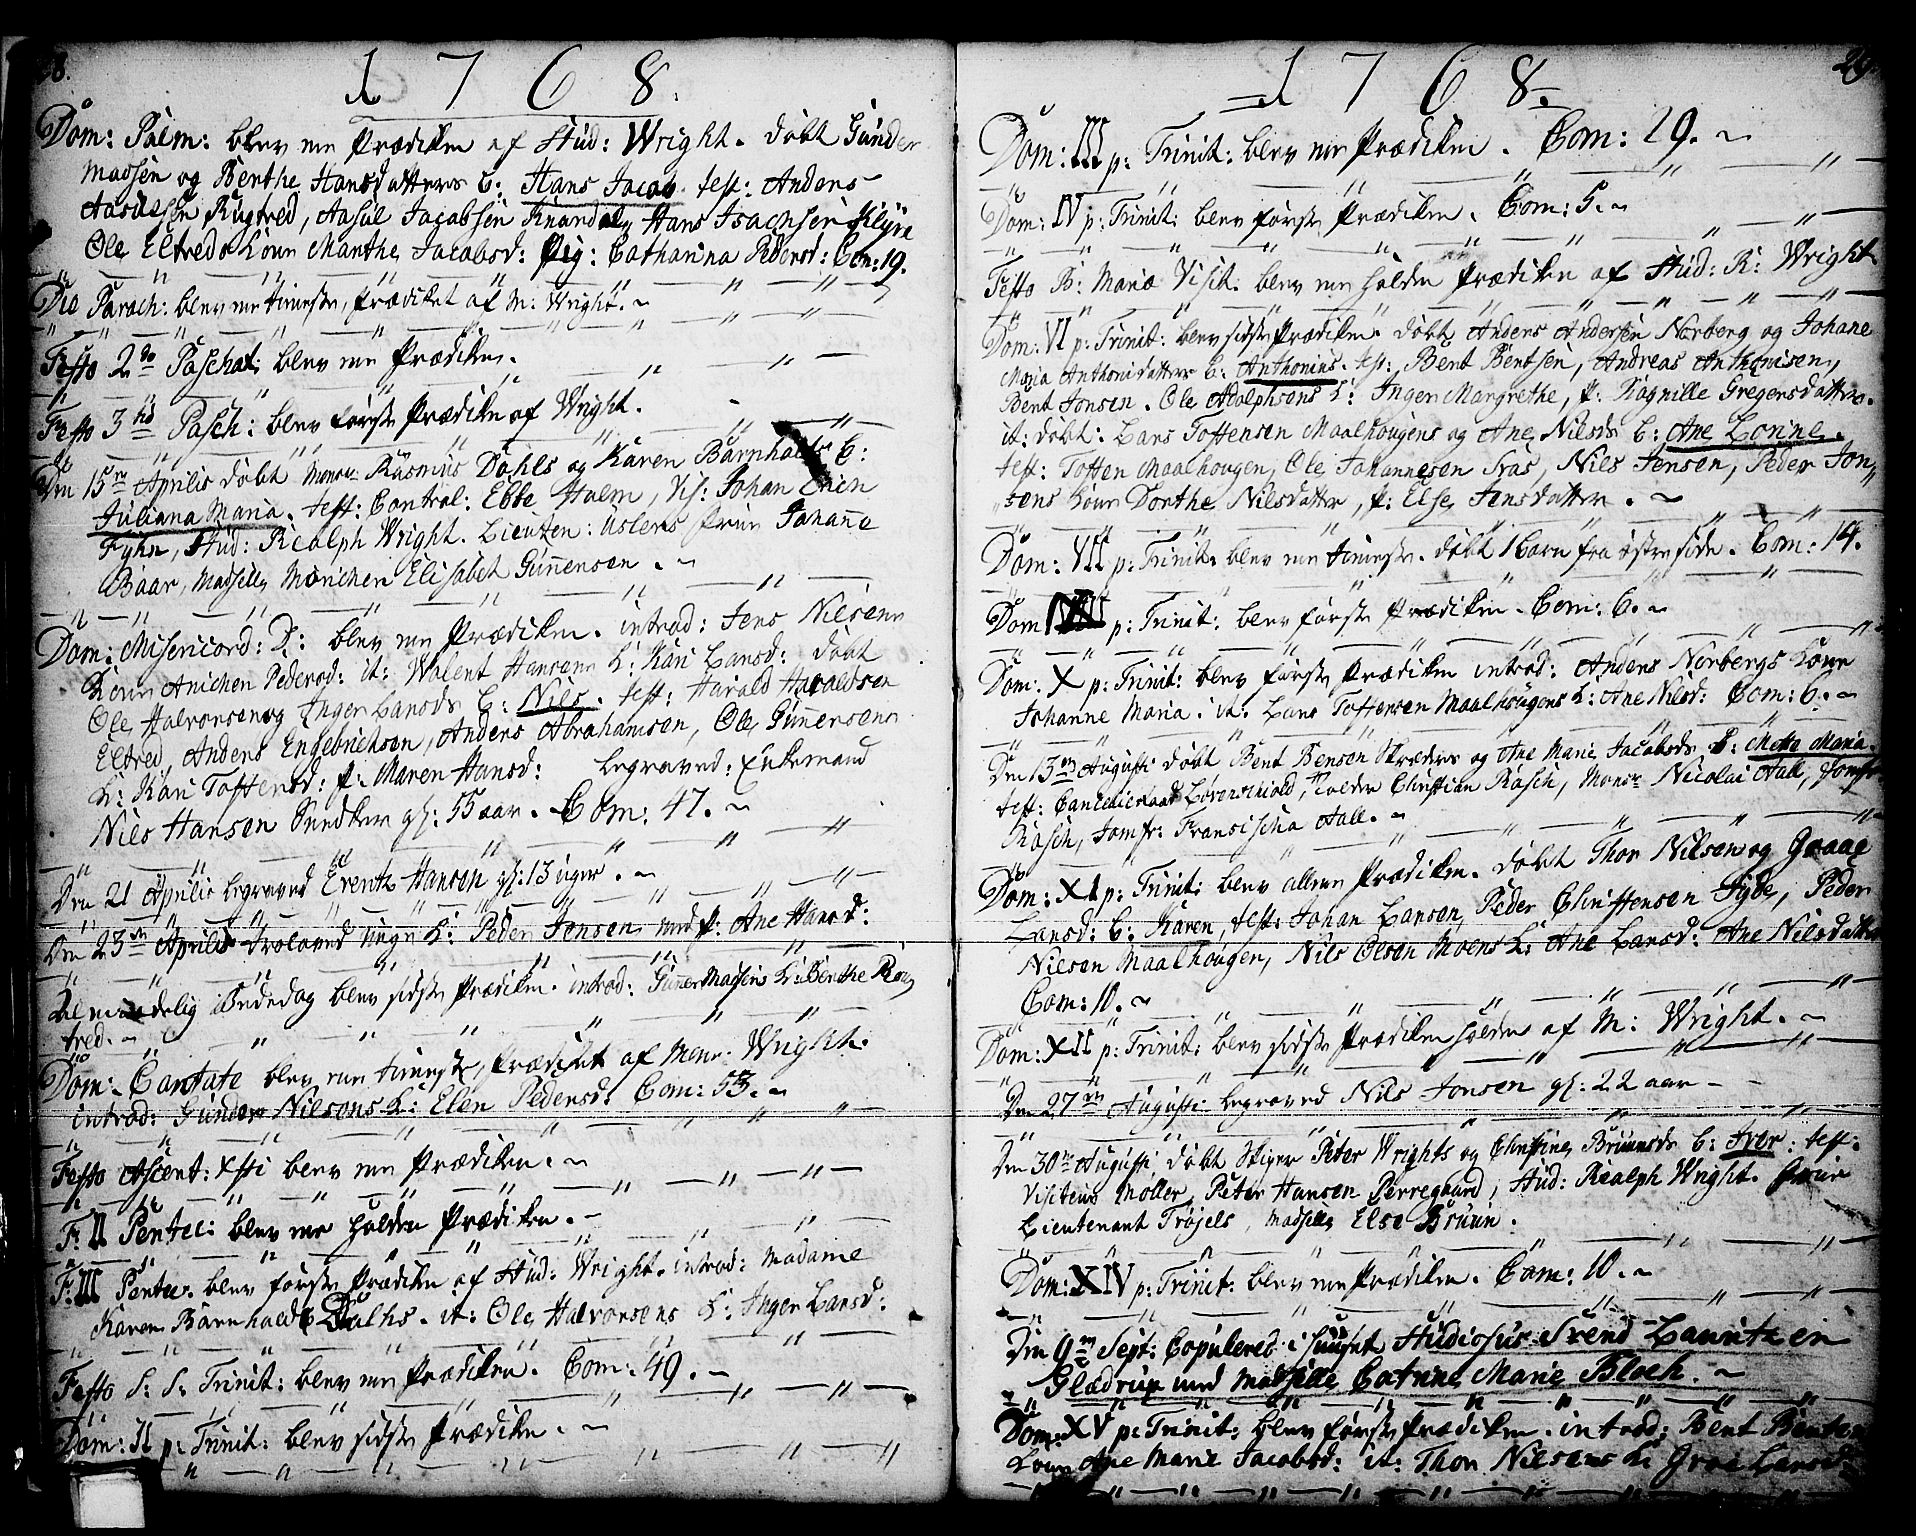 28.
1768.
Dom: Palm: blev een Prædiken af Stud: Wright. døbt Gunder
Madsen og Benthe Hansdatters b: Hans Jacob. test: Anders
Aaslesen Rugtred, Aasul Jacobsen Knardal, Hans Isachsen Klyve
Ole Eltreds Kone Marthe Jacobsd: Pig: Catharina Pedersd: Com: 19.
Die Parach: blev een tieneste, Prædiket af M: Wright.
Festo 2do Paschat: blev een Prædiken.
Festo 3tio Pasch: blev første Prædiken af Wright.
Den 15n Aprilis døbt Monsr Rasmus Dahls og Karen Barnholdts b:
Juliana Maria. test: Control: Ebbe Holm, Vis: Johan Eric
Fyhn, Stud: Realph Wright. Lieuten: Uslers frue Johanne
Baar, Madselle Mørichen Elisabet Gunnersen.
Dom: Misericord: D: blev een Prædiken. introd: Jens Nilsens
Kone Anichen Pedersd: it: Walent Hansens K: Kari Larsd: døbt
Ole Halvorsen og Inger Larsds b: Nils. test: Harald Haraldsen
Eltred, Anders Engebrichsen, Anders Abrahamsen, Ole Gunnersens
K: Kari Toftersd: p: Maren Hansd: begraved: Enkemand
Nils Hansen Snedker gl: 55 aar. Com: 47.
Den 21 Aprilis begraved Erentz Hansen gl: 13 uger.
Den 23n Aprilis troloved ungk: Peder Jensen med p: Ane Hansd:
Almindelig Bededag blev sidste Prædiken. introd: Guner Madsens K: Benthe Rou
tred.
Dom: Cantate blev een tieneste, Prædiket af Monr: Wright.
introd: Gunder Nilsens K: Elen Pedersd: Com: 53.
Festo Ascent: Xsti blev een Prædiken.
F: II Pentec: blev een holden Prædiken.
F: III Pentec. blev første Prædiken af Stud: Wright. introd: Madame
Karen Barnholdt Dalhs. it: Ole Halvorsens K: Inger Larsd:
Festo S: S: Trinit: blev een Prædiken. Com: 49.
Dom: II p: Trinit: blev sidste Prædiken.
29.
1768
Dom: III p: Trinit: blev een Prædiken. Com: 29.
Dom: IV p: Trinit: blev første Prædiken. Com: 5.
Festo B: Mariæ Visit. blev een holden Prædiken af Stud: R: Wright
Dom: VI p: Trinit: blev sidste Prædiken. døbt Anders Andersen Norberg og Johane
Maria Anthonidatters b: Anthonius. test: Bent Bentsen, Andreas Anthonisen,
Bent Jonsen. Ole Adolphsens K: Inger Margrethe, p: Ragnille Gregersdatter.
it: døbt: Lars Toftensen Maalhougens og Ane Nilsds b: Ane Lorine.
test: Toften Maalhougen, Ole Johannesen Tras, Nils Jensen, Peder Jon
sens Kone Dorthe Nilsdatter, p: Else Jensdatter.
Dom: VII p: Trinit: blev een tieneste. døbt 1 barn fra østre side. Com: 14.
Dom p: Trinit: blev første Prædiken. Com: 6.
Dom: X p: Trinit: blev første Prædiken introd: Anders Norbergs Kone
Johanne Maria. it: Lars Toftensen Maalhougens K: Ane Nilsd: Com: 6.
Den 13n Augusti døbt Bent Bensen Skreders og Ane Marie Jacobsds b: Mette Maria.
test: Cancelieraad Løvenskiold, Tolder Christian Rasch, Monsr Nicolai Aall, Jomfr:
Rasch, Jomfr: Francischa Aall.
Dom: XI p: Trinit: blev aleen Prædiken. døbt Thor Nilsen og Groae
Larsd: b: Karen, test: Johan Larsen, Peder Christensen Fyde, Peder
Nilsen Maalhougen, Nils Olsen Moens K: Ane Larsd: Ane Nilsdatter
Com: 10.
Dom: XII p: Trinit: blev sidste Prædiken holden af M: Wright.
Den 27n Augusti begraved Nils Jonsen gl: 22 aar
Den 30n Augusti døbt Skiper Peter Wrights og Christine Bruunsds b: Iver. test:
Visiteur Møller, Peter Hansen Perregaard, Stud: Realph Wright. Frue
Lieutenant Trøjels, Madselle Else Bruun.
Dom: XIV p: Trinit: blev een Prædiken. Com: 10.
Den 9n Sept: Copuleret i huuset Studiosus Svend Lauritzen
Gladrup med Madselle Catrine Marie Bloch.
Dom: XV p: Trinit: blev første Prædiken. introd: Bent Bentsens
Kone Ane Marie Jacobsd: it: Thor Nilsens K: Groe Larsd: